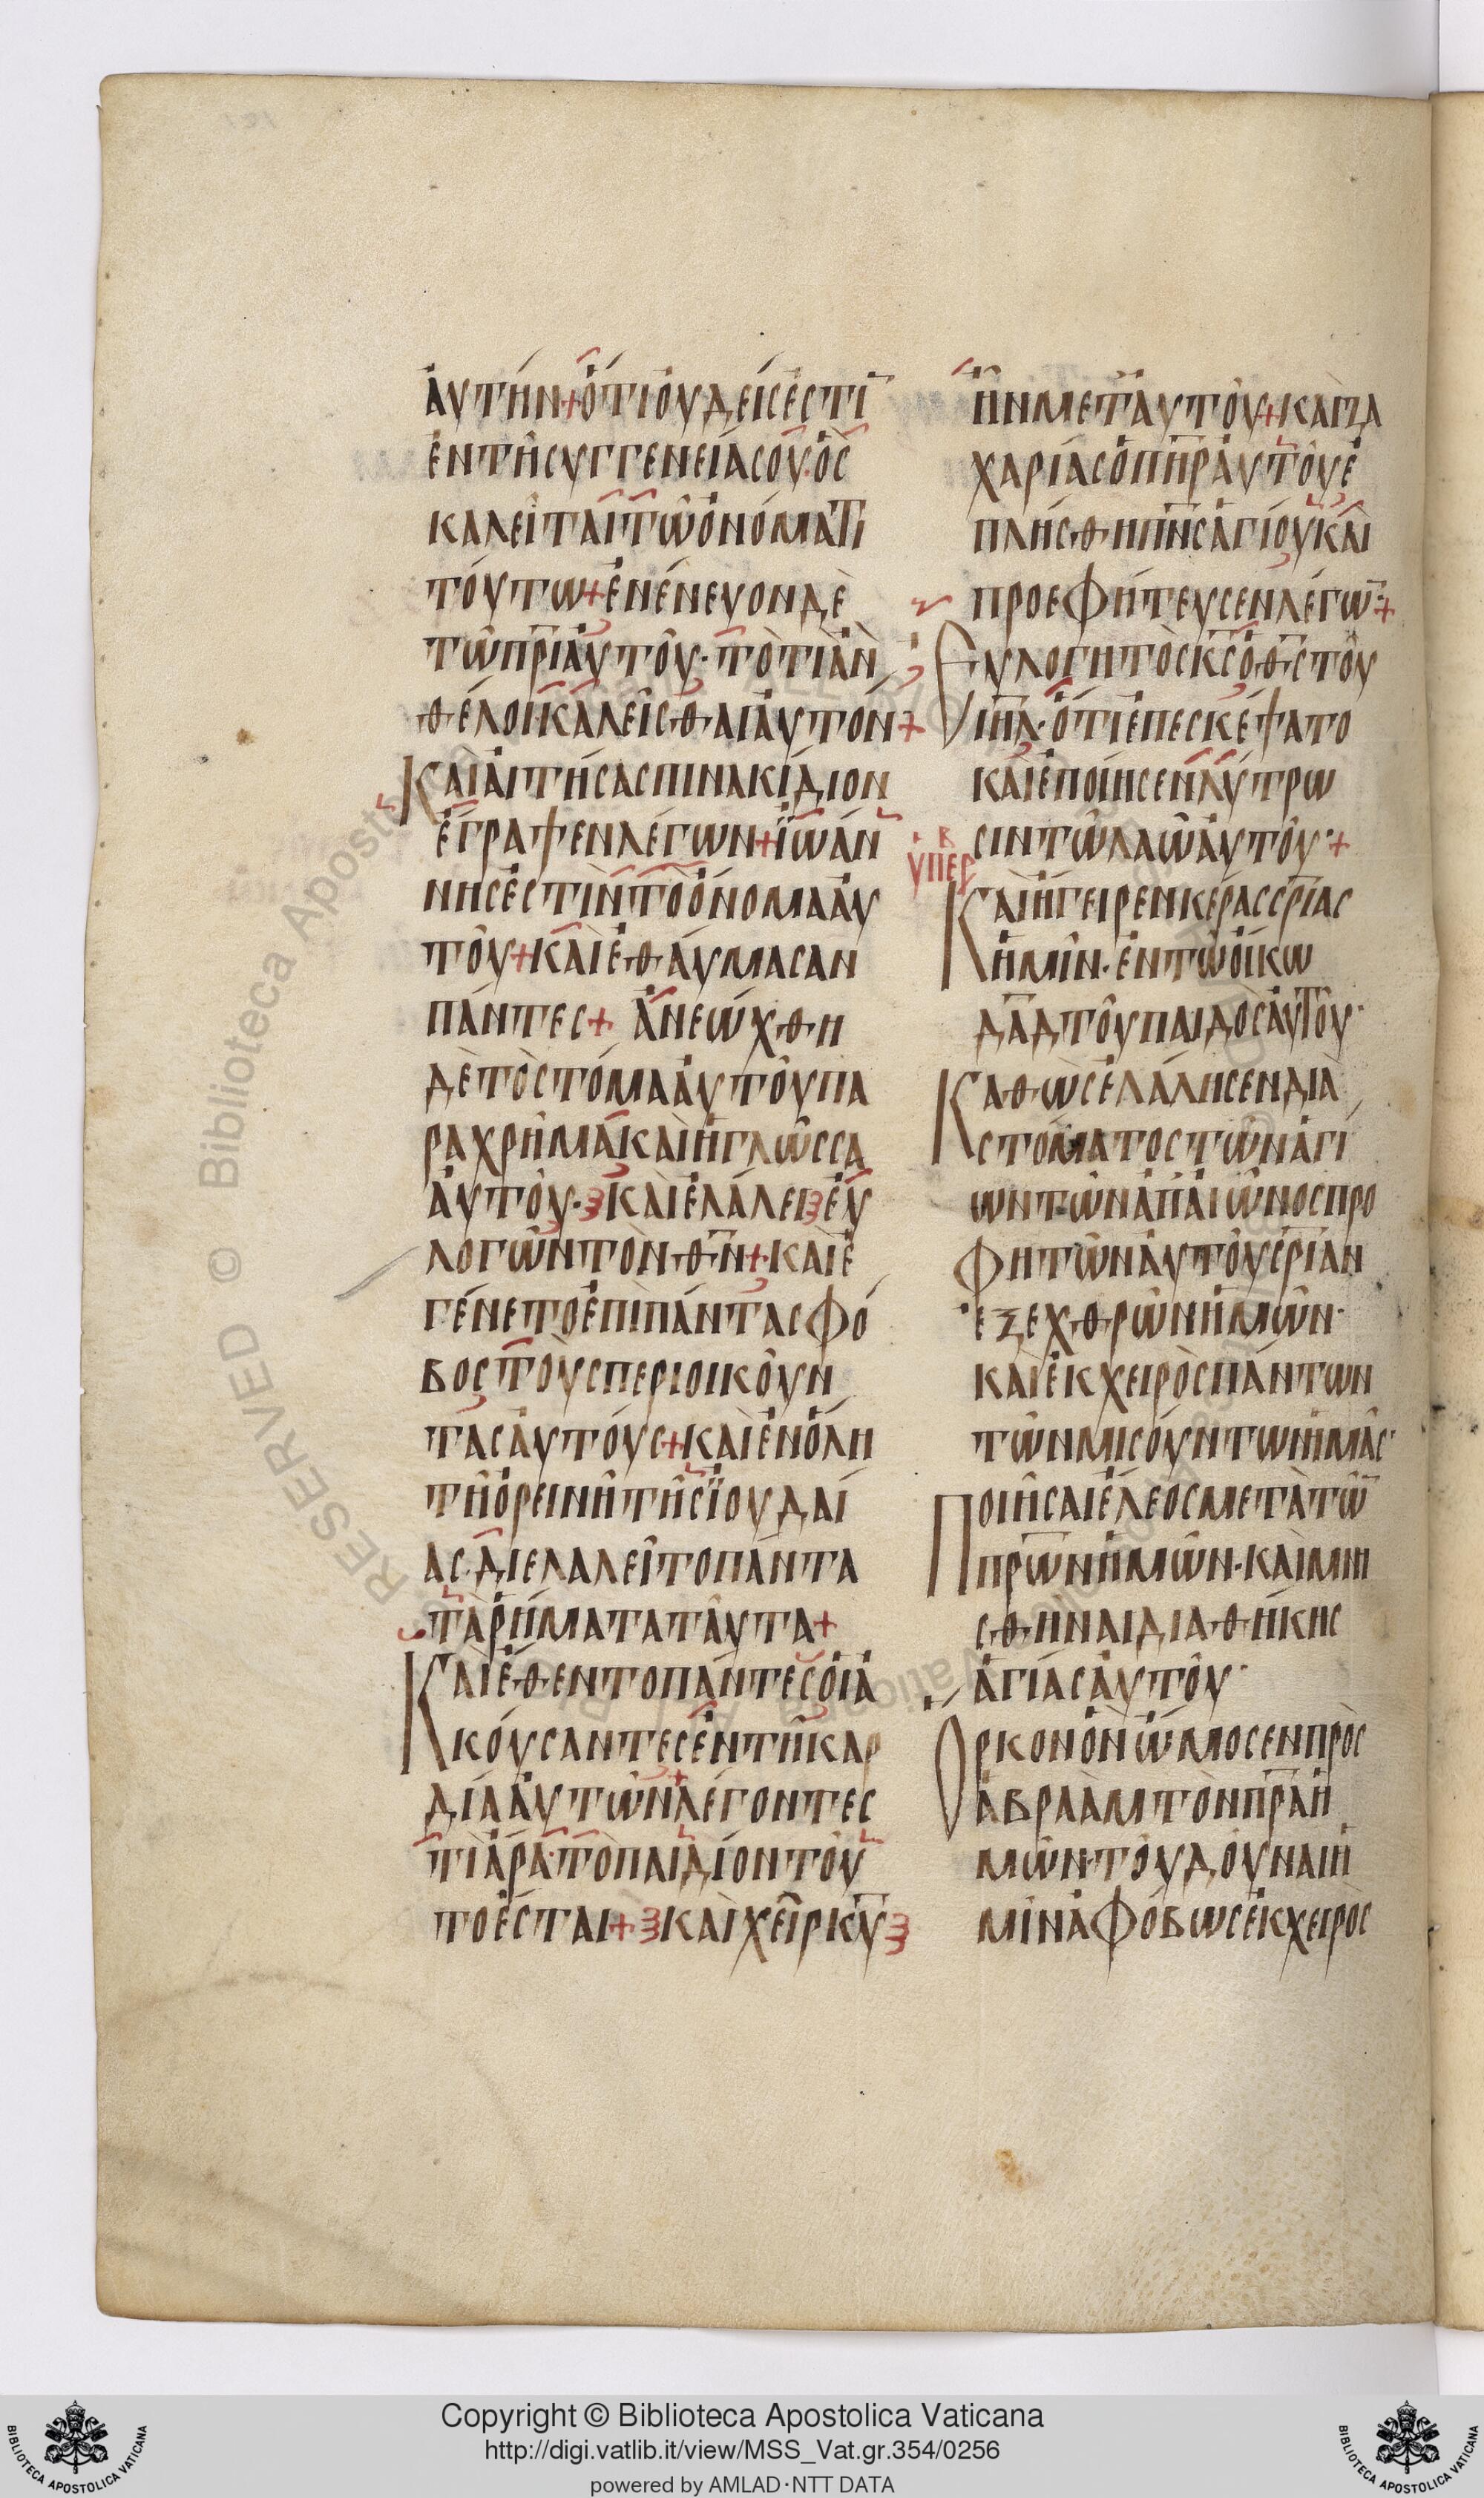 ἀυτήν+ὅτι ὀυδείς ἐστῑ
ἐν τῆ συγγενείασου· ὃς
καλεῖται τῶ ὀνόματι
τόυτω+ἐνένευον δὲ
τῶ πρ̅ι ἀυτοῦ· τὸ τί ἂν
θέλοι καλεῖσθαι ἀυτόν+
Καὶ ἀιτήσας πινακίδιον
ἔγραψεν λέγων+ϊωάν
νης ἐστὶν τὸ ὄνομα ἀυ
τοῦ+καὶ ἐθάυμασαν
πάντες+ ἀνεώχθη
δὲ τὸ στόμα ἀυτοῦ πα
ραχρῆμα καὶ ἡ γλῶσσα
ἀυτοῦ·καὶ ἐλάλει ἐυ
λογῶν τὸν θ̅ν+καὶ ἐ
γένετο ἐπὶ πάντας φό
βος τοὺς περιοικοῦν
τας ἀυτόυς+καὶ ἐν ὅλη
τῆ ὀρεινῆ τῆς ϊουδαί
ας·διελαλεῖτο πάντα
τὰ ῥήματα ταῦτα+
Καὶ ἔθεντο πάντες ὁι ἀ
κόυσαντες ἐν τῆ καρ
δία ἀυτῶν λέγοντες
τί ἄρα·τὸ παιδίον τοῦ
το ἔσται+καὶ χεὶρ κ̅υ
ἦν μετ ἀυτοῦ+καὶ ζα
χαρίας ὁ π̅ηρ ἀυτοῦ ἐ
πλήσθη π̅ν̅ς ἁγίου καὶ
προεφήτευσεν λέγω̅+
Ευλογητὸς κ̅ς ὁ θ̅ς τοῦ
ι̅η̅λ·ὅτι ἐπεσκέψατο
καὶ ἐποίησεν λύτρω
σιν τῶ λαῶ ἀυτοῦ·+
ὑπερ
Καὶ ἤγειρεν κέρας σ̅ρ̅ίας
ἡμῖν·ἐν τῶ ὄικω
δ̅α̅δ τοῦ παιδὸς ἀυτοῦ·
Καθὼς ἐλάλησεν διὰ
στόματος τῶν ἁγί
ων τῶν ἀπ ἀιῶνος προ
φητῶν ἀυτοῦ σ̅ρ̅ίαν
ἐξ ἐχθρῶν ἡμῶν·
καὶ ἐκ χειρὸς πάντων
τῶν μισόυντων ἡμᾶς·
Ποιῆσαι ἔλεος μετὰ τῶ̅
π̅ρ̅ων ἡμῶν·καὶ μνη
σθῆναι διαθήκης
ἁγίας ἀυτοῦ·
Ορκον ὃν ὤμοσεν πρὸς
ἀβραὰμ τὸν π̅ρ̅α ἡ
μῶν·τοῦ δοῦναι ἡ
μῖν ἀφόβως ἐκ χειρὸς
BIBLIOTECA APOSTOLICA VATICANA
Copyright © Biblioteca Apostolica Vaticana
http://digi.vatlib.it/view/MSS_Vat.gr.354/0256
powered by AMLAD·NTT DATA
BIBLIOTECA APOSTOLICA VATICANA